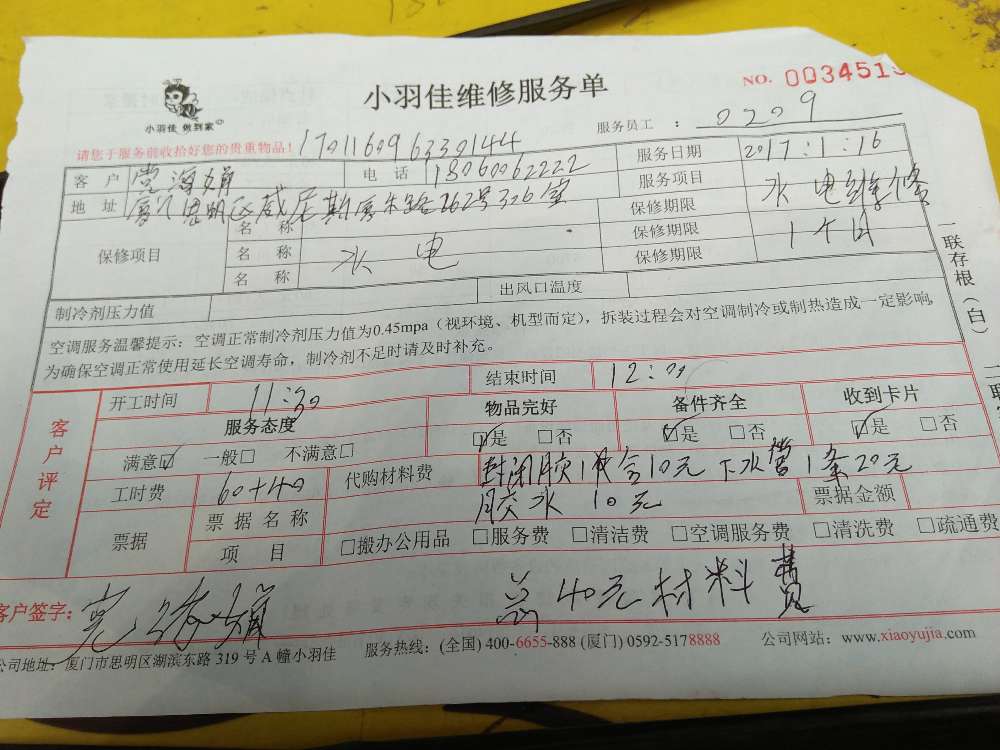 小羽佳 做到家
小羽佳维修服务单
NO. 0034515
请您于服务前收拾好您的贵重物品！
170116096330144
服务员工 ： 0209
客 户
电 话 18060062222
服务日期 2017:1:16
地 址 厦门思明区威尼斯 262号326室
服务项目 水电维修
保修项目
名 称 保修期限
名 称 水 电 保修期限 1个月
名 称 保修期限
制冷剂压力值
出风口温度
空调服务温馨提示：空调正常制冷剂压力值为0.45mpa（视环境、机型而定），拆装过程会对空调制冷或制热造成一定影响,
为确保空调正常使用延长空调寿命，制冷剂不足时请及时补充。
一联存根（白）
客户评定
开工时间 11:30
结束时间 12:00
服务态度 物品完好 备件齐全 收到卡片
满意☑ 一般□ 不满意□ ☑是 □否 ☑是 □否 ☑是 □否
工时费 60+40
代购材料费 封闭胶1 10元 下水管1条20元
胶水 10元
票据金额
票据
票 据 名 称
项 目
□搬办公用品 □服务费 □清洁费 □空调服务费 □清洗费 □疏通费
客户签字:
总40元材料费
公司地址: 厦门市思明区湖滨东路 319 号 A 幢小羽佳 服务热线：(全国) 400-6655-888 (厦门) 0592-5178888 公司网站：www.xiaoyujia.com